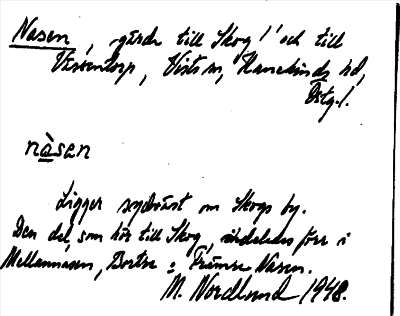 Nasen, gärde till Skog 1¹ och till
Vessentorp, Vists sn, Hanekinds hd,
Östg. l.
nàsen
Ligger sydväst om Skogs by.
Den del, som hör till Skog, indelas förr i
Mellannasen, Bortre o. Främre Nasen.
M. Nordlund 1948.